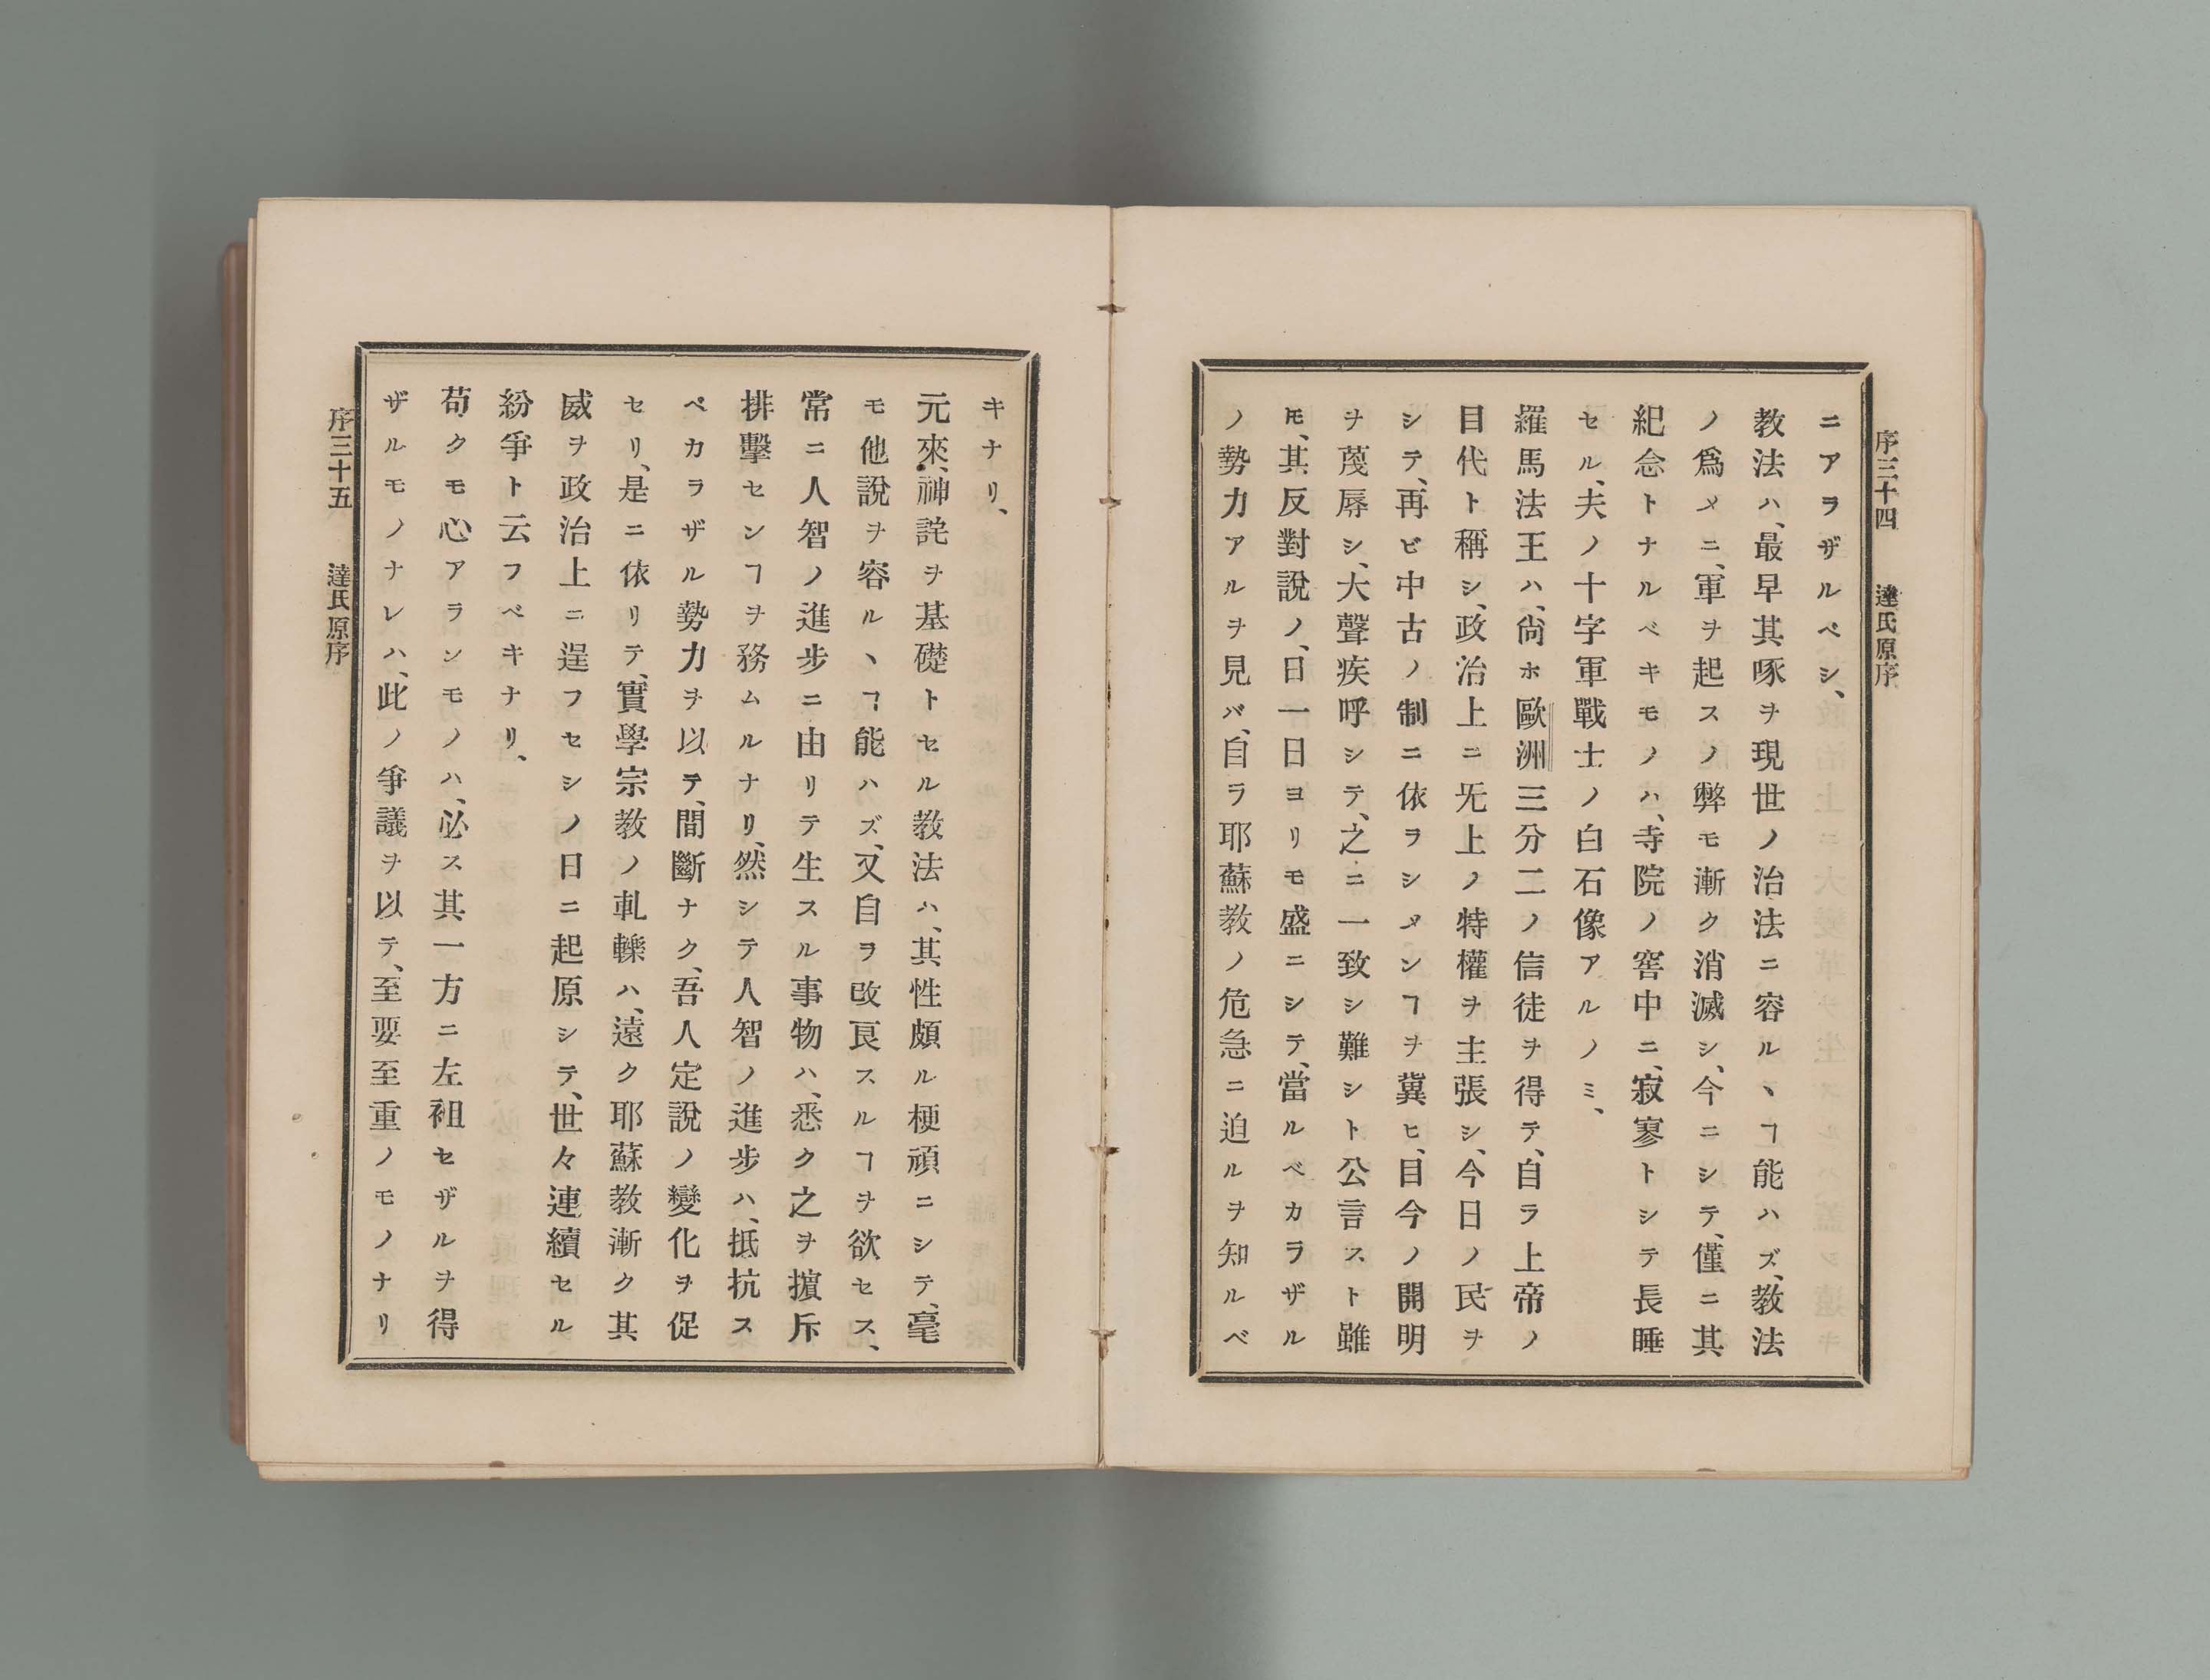 序三十四　達氏原序
ニアラザルベシ、
教法ハ、最早其啄ヲ現世ノ治法ニ容ルヽヿ能ハズ、教法
ノ爲メニ、軍ヲ起スノ弊モ漸ク消滅シ、今ニシテ、僅ニ其
紀念トナルベキモノハ、寺院ノ窖中ニ、寂寥トシテ長睡
セル、夫ノ十字軍戰士ノ白石像アルノミ、
羅馬法王ハ、尙ホ歐洲三分二ノ信徒ヲ得テ、自ラ上帝ノ
目代ト稱シ、政治上ニ旡上ノ特權ヲ主張シ、今日ノ民ヲ
シテ、再ビ中古ノ制ニ依ヲシメンヿヲ冀ヒ、目今ノ開明
ヲ蔑辱シ、大聲疾呼シテ、之ニ一致シ難シト公言スト雖
𪜈、其反對說ノ、日一日ヨリモ盛ニシテ、當ルベカラザル
ノ勢力アルヲ見バ、自ラ耶蘇教ノ危急ニ迫ルヲ知ルベ
キナリ、
元來、神託ヲ基礎トセル教法ハ、其性頗ル梗頑ニシテ、毫
モ他說ヲ容ルヽヿ能ハズ、又自ヲ改良スルヿヲ欲セス、
常ニ人智ノ進步ニ由リテ生スル事物ハ、悉ク之ヲ擯斥
排擊センヿヲ務ムルナリ、然シテ人智ノ進步ハ、抵抗ス
ベカラザル勢力ヲ以テ、間斷ナク、吾人定說ノ變化ヲ促
セリ、是ニ依リテ、實學宗教ノ軋轢ハ、遠ク耶蘇教漸ク其
威ヲ政治上ニ逞フセシノ日ニ起原シテ、世々連續セル
紛爭ト云フベキナリ、
苟クモ心アランモノハ、必ス其一方ニ左袒セザルヲ得
ザルモノナレハ、此ノ爭議ヲ以テ、至要至重ノモノナリ
序三十五　達氏原序